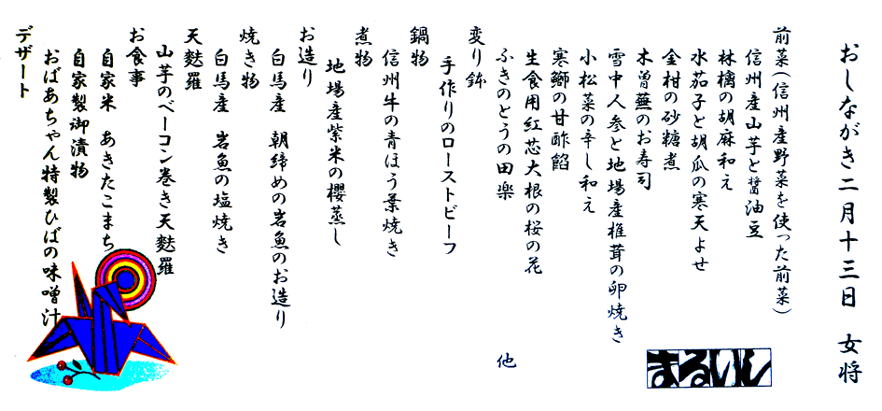 おしながき二月十三日　女将
前菜(信州産野菜を使った前菜)
信州産山芋と醤油豆
林檎の胡麻和え
水茄子と胡瓜の寒天よせ
金柑の砂糖煮
木曽蕪のお寿司
雪中人参と地場産椎茸の卵焼き
小松菜の辛し和え
寒鰤の甘酢餡
生食用紅芯大根の桜の花
ふきのとうの田楽　他
変り鉢
手作りのローストビーフ
鍋物
信州牛の青ほう葉焼き
煮物
地場産紫米の櫻蒸し
お造り
白馬産　朝締めの岩魚のお造り
焼き物
白馬産　岩魚の塩焼き
天麩羅
山芋のベーコン巻き天麩羅
お食事
自家米　あきたこまち
自家製御漬物
おばあちゃん特製ひばの味噌汁
デザート
まるいし